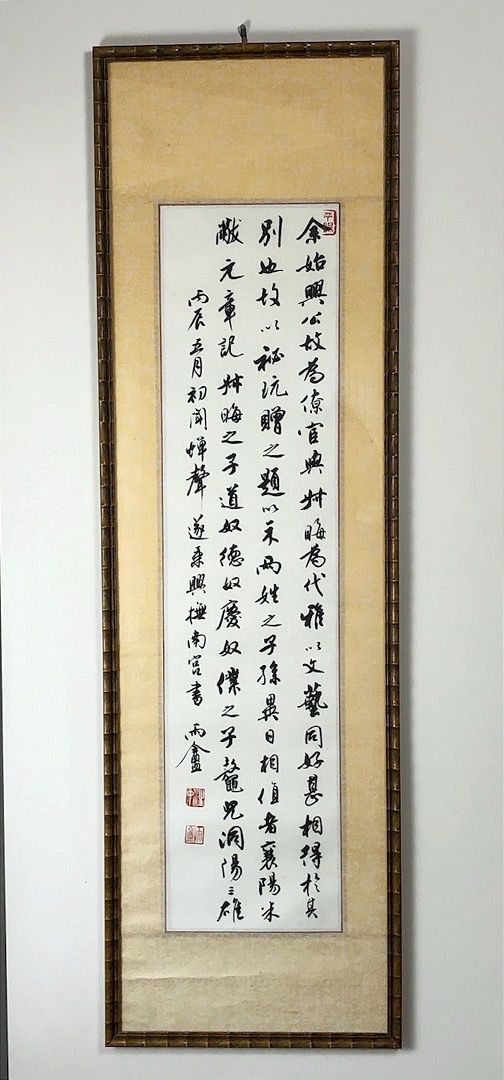 余始興公故為僚官與叔晦為代雅以文藝同好甚相得於其
別也故以祕玩贈之題以示兩姓之子孫異日相值者襄陽米
黻元章記叔晦之子道奴德奴慶奴僕之子鼇兒洞陽三雄
丙辰五月初聞蟬聲遂乘興撫南宮書 雨盦